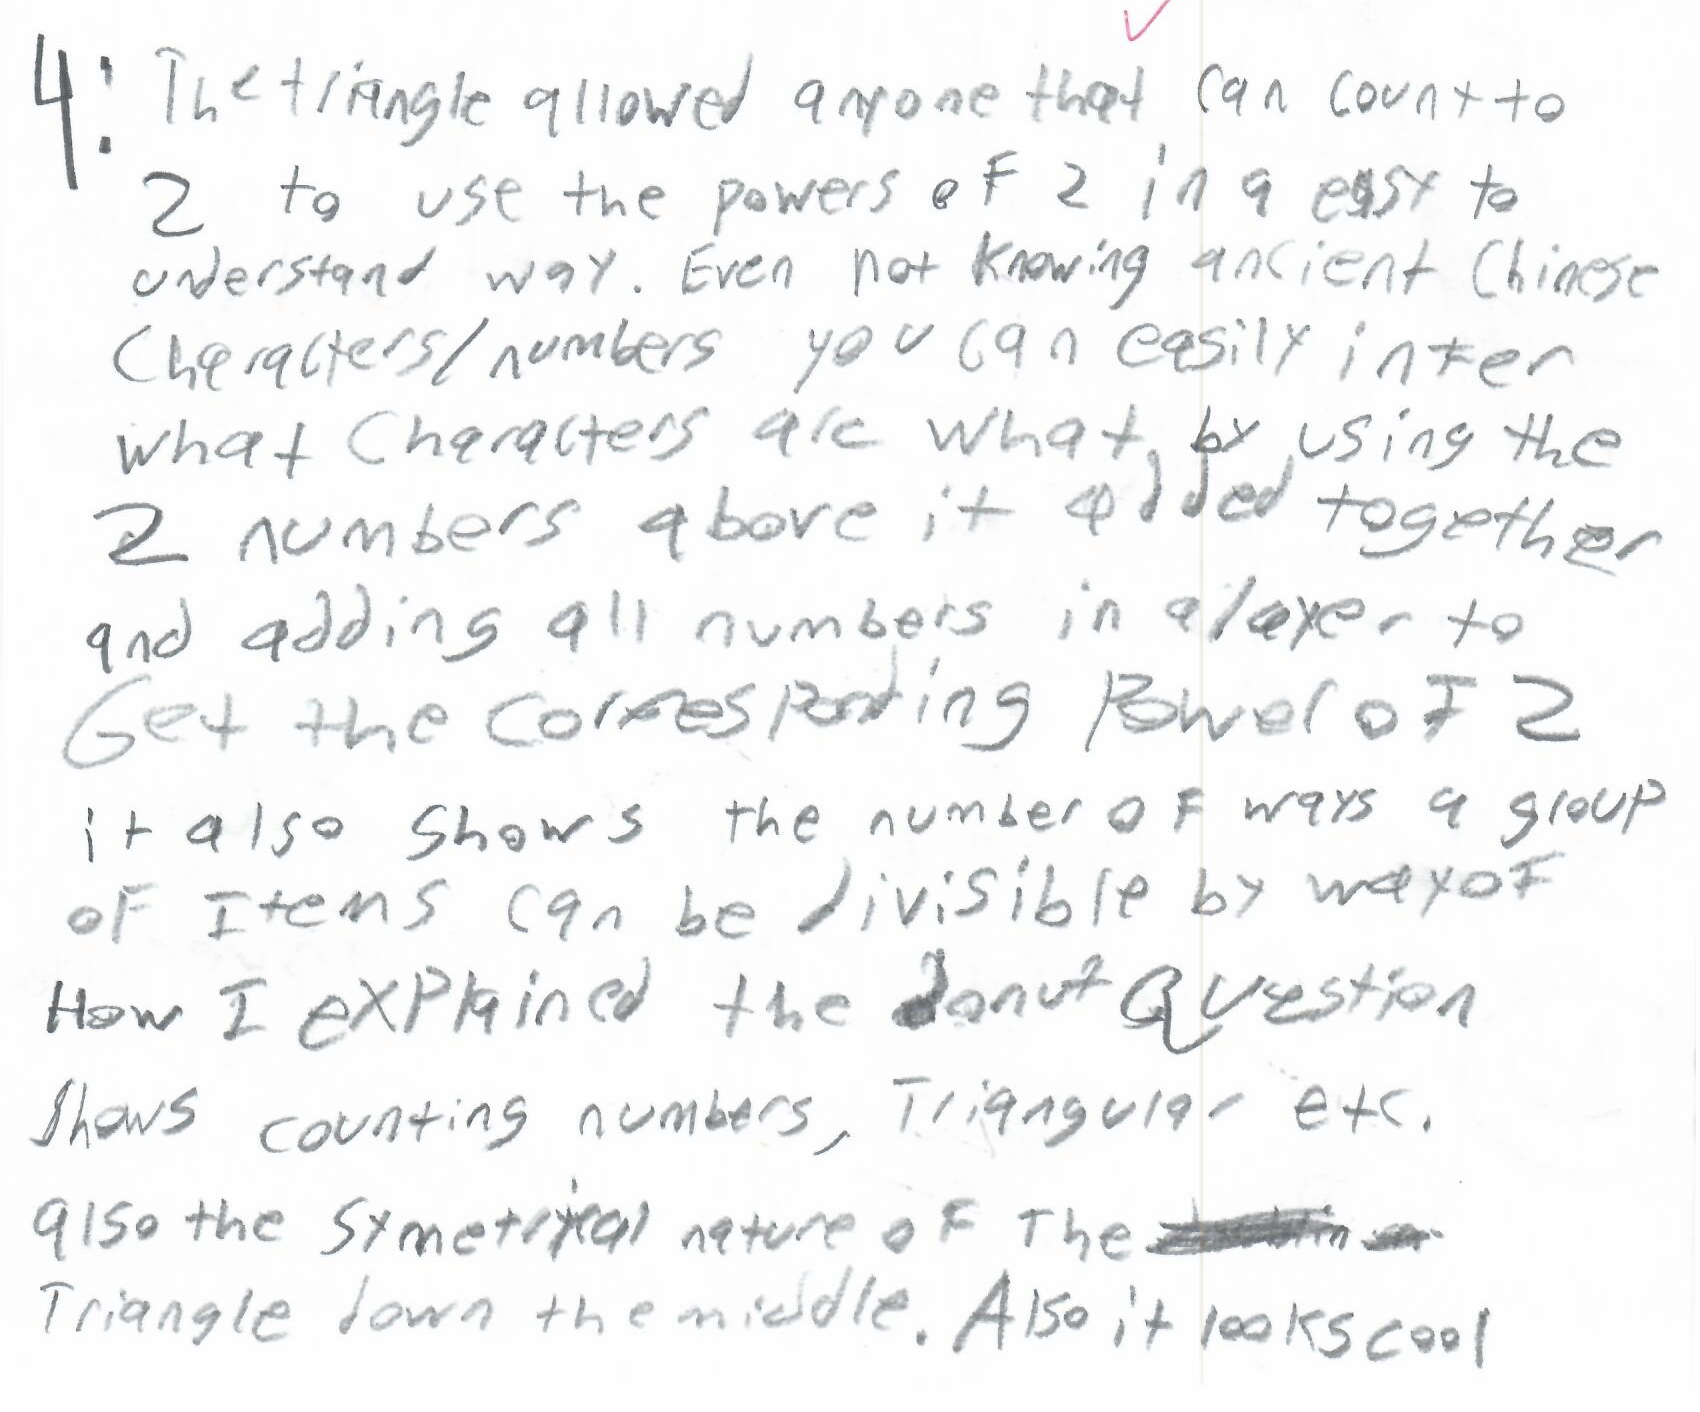 4: The triangle allowed anyone that can count to
2 to use the powers of 2 in a easy to
understand way. Even not knowing ancient Chinese
Characters/numbers you can easily infer
what Characters are what, by using the
2 numbers above it added together
and adding all numbers in a layer to
Get the Corresponding Power of 2
it also shows the number of ways a group
of Items can be divisible by way of
How I explained the donut Question
Shows counting numbers, Triangular etc.
also the Symetrical nature of The
Triangle down the middle. Also it looks cool